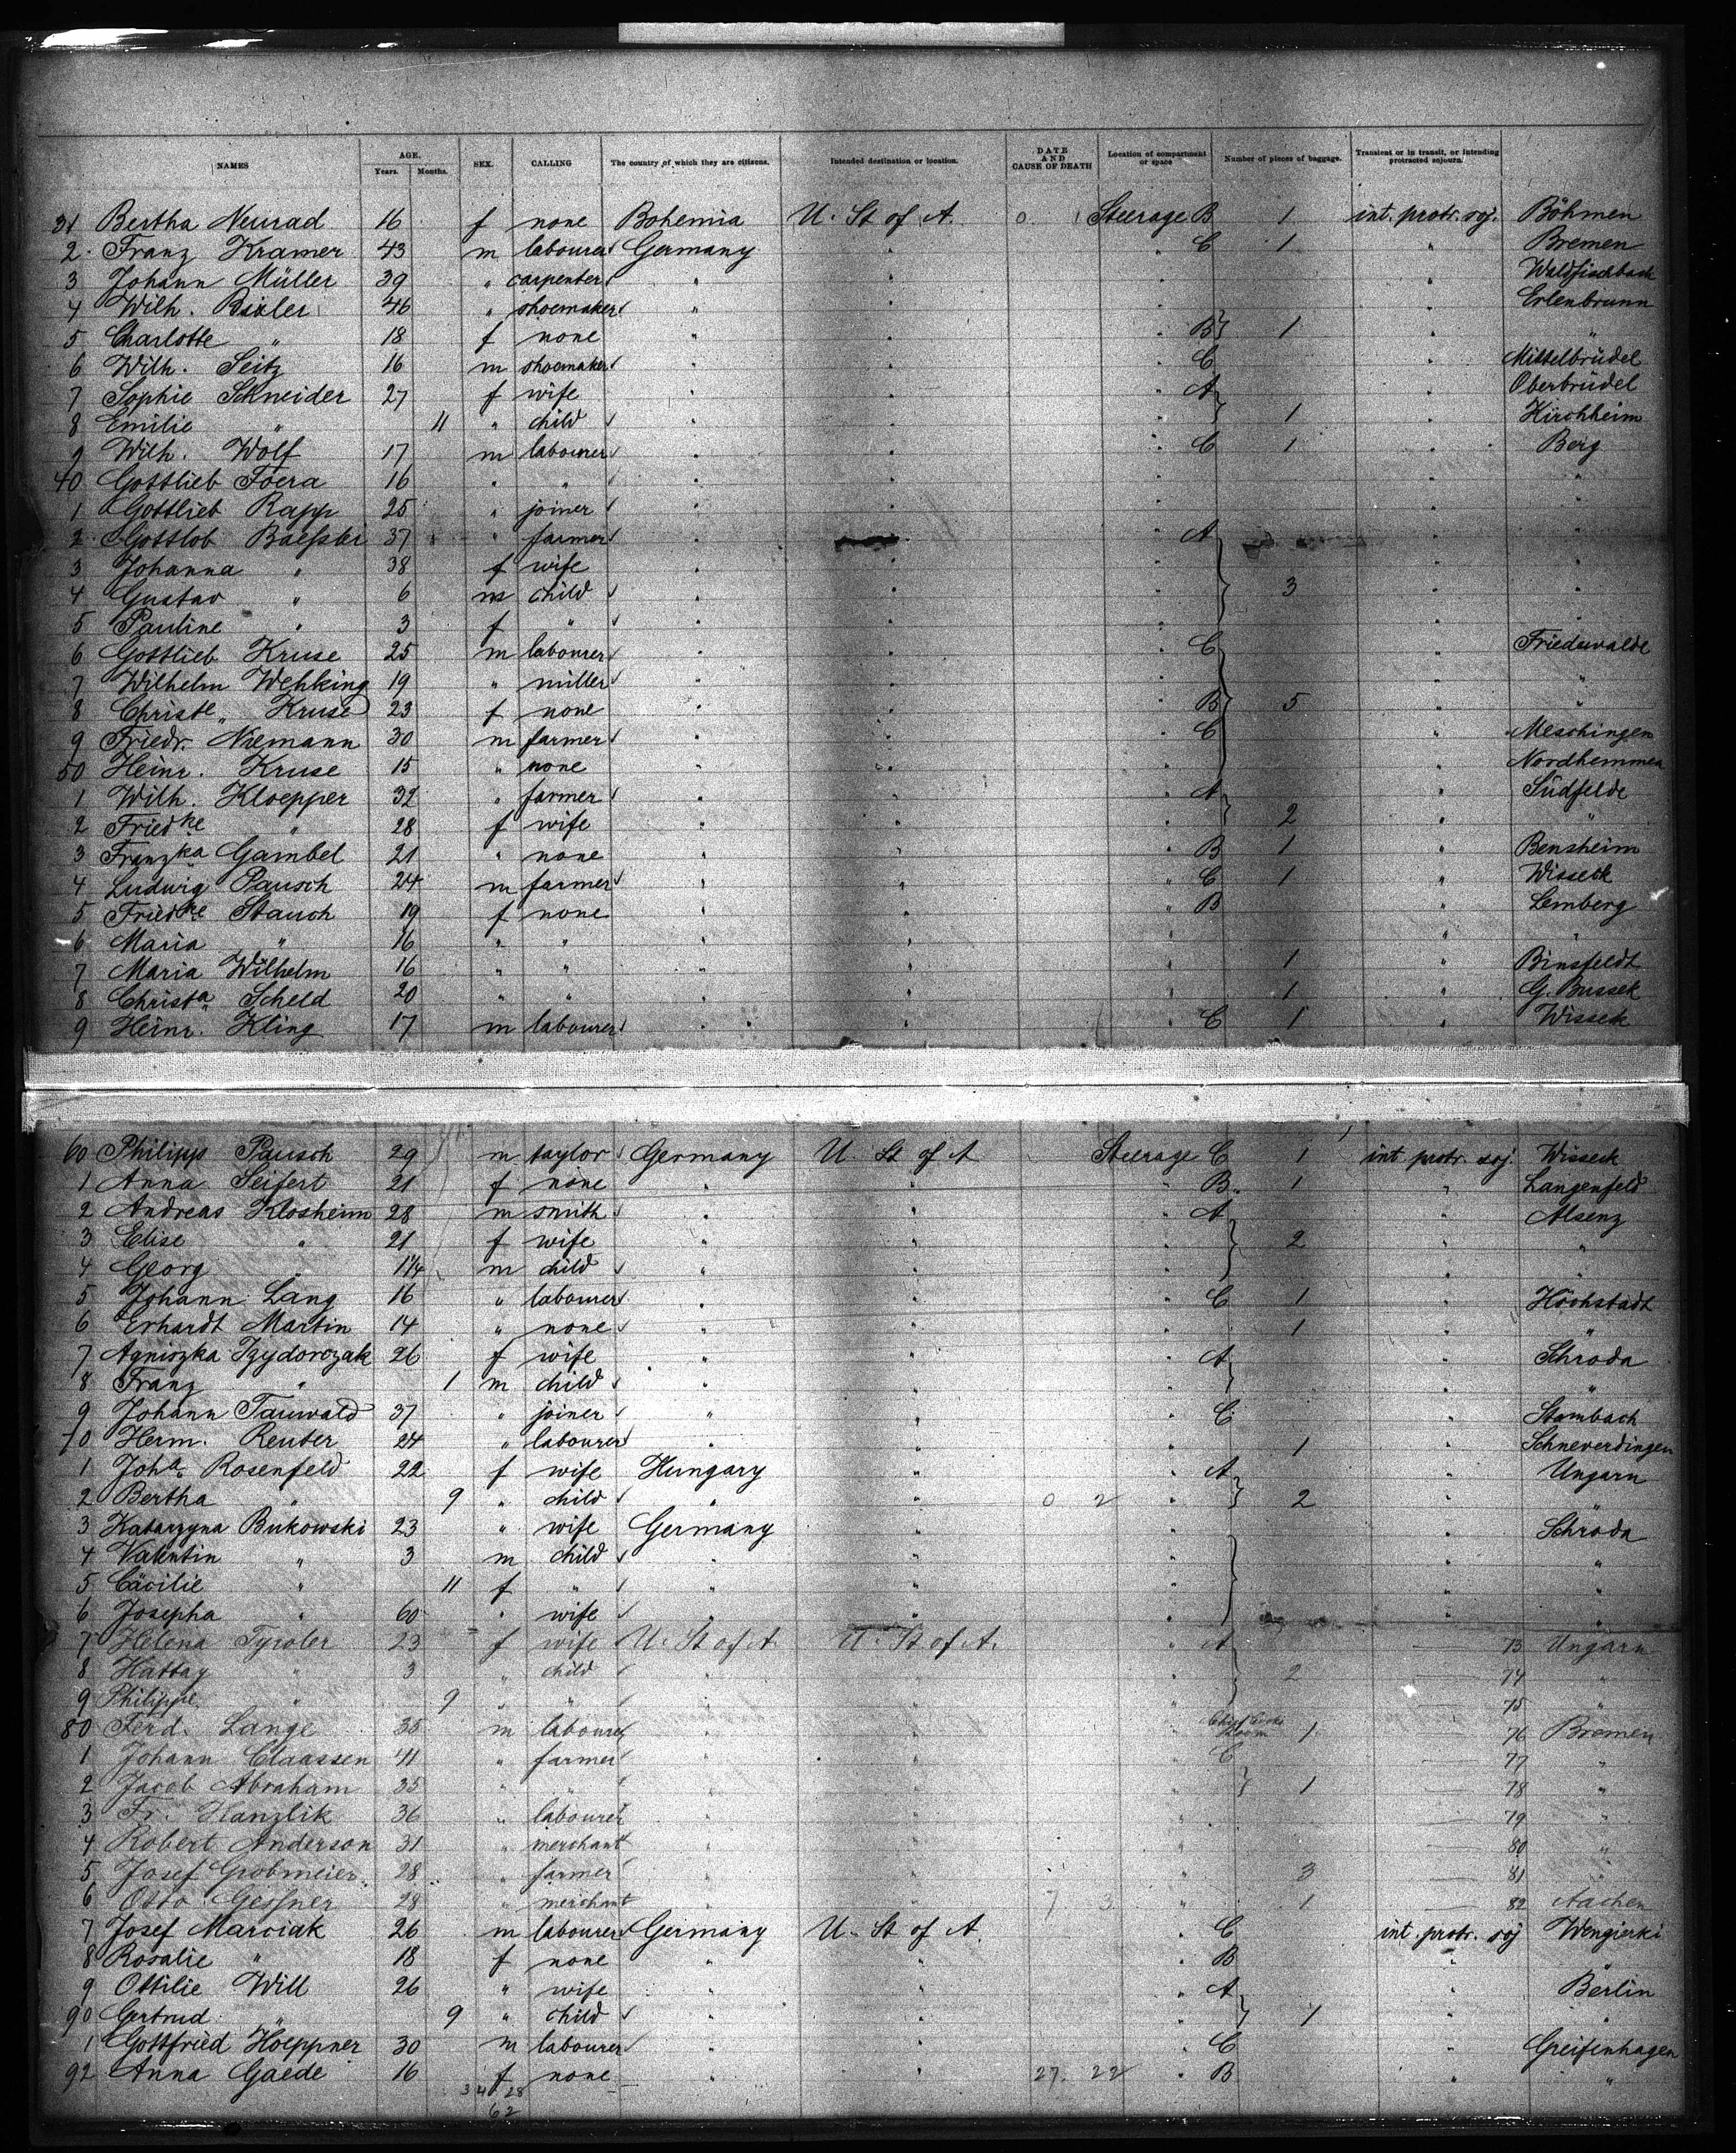 NAMES AGE. Years. Months. SEX. CALLING The country of which they are citizens. Intended destination or location. DATE AND CAUSE OF DEATH Location of compartment or space Number of pieces of baggage. Transient or in transit, or intending protracted sojourn.
31 Bertha Neurad 16 f none Bohemia U. St of A. 0 1 Steerage B 1 int. protr. soj. Böhmen
2 Franz Kramer 43 m labourer Germany " C 1 " Bremen
3 Johann Müller 39 " carpenter " " " " Waldfischbach
4 Wilh. Bixler 46 " shoemaker " " " " Erlenbrunn
5 Charlotte " 18 f none " " " B 1 " "
6 Wilh. Seitz 16 m shoemaker " " " C " Mittelbrüdel
7 Sophie Schneider 27 f wife " " " A " Oberbrüdel
8 Emilie " 11 " child " " " 1 " Kirchheim
9 Wilh. Wolf 17 m labourer " " " C 1 " Berg
40 Gottlieb Foera 16 " " " " " " "
1 Gottlieb Rapp 25 " joiner " " " " "
2 Gottlob Baessler 37 " farmer " " A " "
3 Johanna " 38 f wife " " " " "
4 Gustav " 6 m child " " " 3 " "
5 Pauline " 3 f " " " " " "
6 Gottlieb Kruse 25 m labourer " " " C " Friedewalde
7 Wilhelm Wehking 19 " miller " " " " "
8 Christe Kruse 23 f none " " " B 5 " "
9 Friedr. Niemann 30 m farmer " " " C " Meschingen
50 Heinr. Kruse 15 " none " " " " Nordhemmen
1 Wilh. Kloepper 32 " farmer " " " A " Südfelde
2 Friedke " 28 f wife " " " 2 " "
3 Franzka Gambel 21 " none " " " B 1 " Bensheim
4 Ludwig Pausch 24 m farmer " " " C 1 " Wisseck
5 Friedke Stauch 19 f none " " " B " Lemberg
6 Maria " 16 " " " " " " "
7 Maria Wilhelm 16 " " " " " 1 " Binsfeldt
8 Christa Scheld 20 " " " " " 1 " G. Bussek
9 Heinr. Kling 17 m labourer " " " C 1 " Wissek
60 Philipp Pausch 29 m taylor Germany U. St of A Steerage C 1 int. protr. soj. Wisseck
1 Anna Seifert 21 f none " " " B 1 " Langenfeld
2 Andreas Klosheim 28 m smith " " " A " Alsenz
3 Elise " 21 f wife " " " 2 " "
4 Georg " 1 1/4 m child " " " " "
5 Johann Lang 16 " labourer " " " C 1 " Höchstadt
6 Erhardt Martin 14 " none " " " 1 " "
7 Agniszka Izydorczak 26 f wife " " " A " Schroda
8 Franz " 1 m child " " " " "
9 Johann Tauwald 37 " joiner " " " C " Stambach
70 Herm. Reuter 24 " labourer " " " 1 " Schneverdingen
1 Joha. Rosenfeld 22 f wife Hungary " " A " Ungarn
2 Bertha " 9 " child " " 0 2 " 2 "
3 Katarzyna Bukowski 23 " wife Germany " " " Schroda
4 Valentin " 3 m child " " " " "
5 Cäcilie " 11 f " " " " " "
6 Josepha " 60 " wife " " " " "
7 Helena Tyroler 23 f wife U. St of A. U. St of A. " A 73 Ungarn
8 Hattay " 3 " child " " " 2 74 "
9 Philippe " 9 " " " " " 75 "
80 Ferd. Lange 35 m labourer " " Room 1 76 Bremen
1 Johann Claassen 41 " farmer " " " C 77 "
2 Jacob Abraham 35 " " " " " 1 78 "
3 Fr. Hanzlik 36 " labourer " " " 79 "
4 Robert Anderson 31 " merchant " " " 80 "
5 Josef Grobmeier 28 " farmer " " " 3 81 "
6 Otto Gessner 28 " merchant " " 7 3 " 1 82 Aachen
7 Josef Marciak 26 m labourer Germany U. St of A. " C int. protr. soj Wengierki
8 Rosalie " 18 f none " " " B " "
9 Ottilie Will 26 " wife " " " A " Berlin
90 Gertrud " 9 " child " " " 1 " "
1 Gottfried Hoeppner 30 m labourer " " " C " Greifenhagen
92 Anna Gaede 16 f none " " 27 22 " B " "
34 28
62